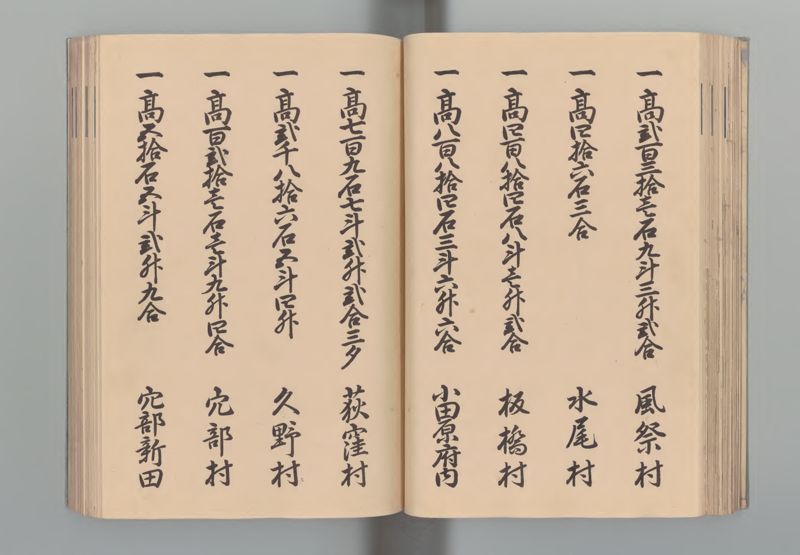 一 高弐百三拾壱石九斗三升弐合 風祭村
一 高四拾六石三合 水尾村
一 高四百八拾四石八斗壱升弐合 板橋村
一 高八百八拾四石三斗六升六合 小田原府内
一 高七百九石七斗弐升弐合三夕 荻窪村
一 高弐千八拾六石五斗四升 久野村
一 高百弐拾壱石壱斗九升四合 穴部村
一 高五拾石五斗弐升九合 穴部新田